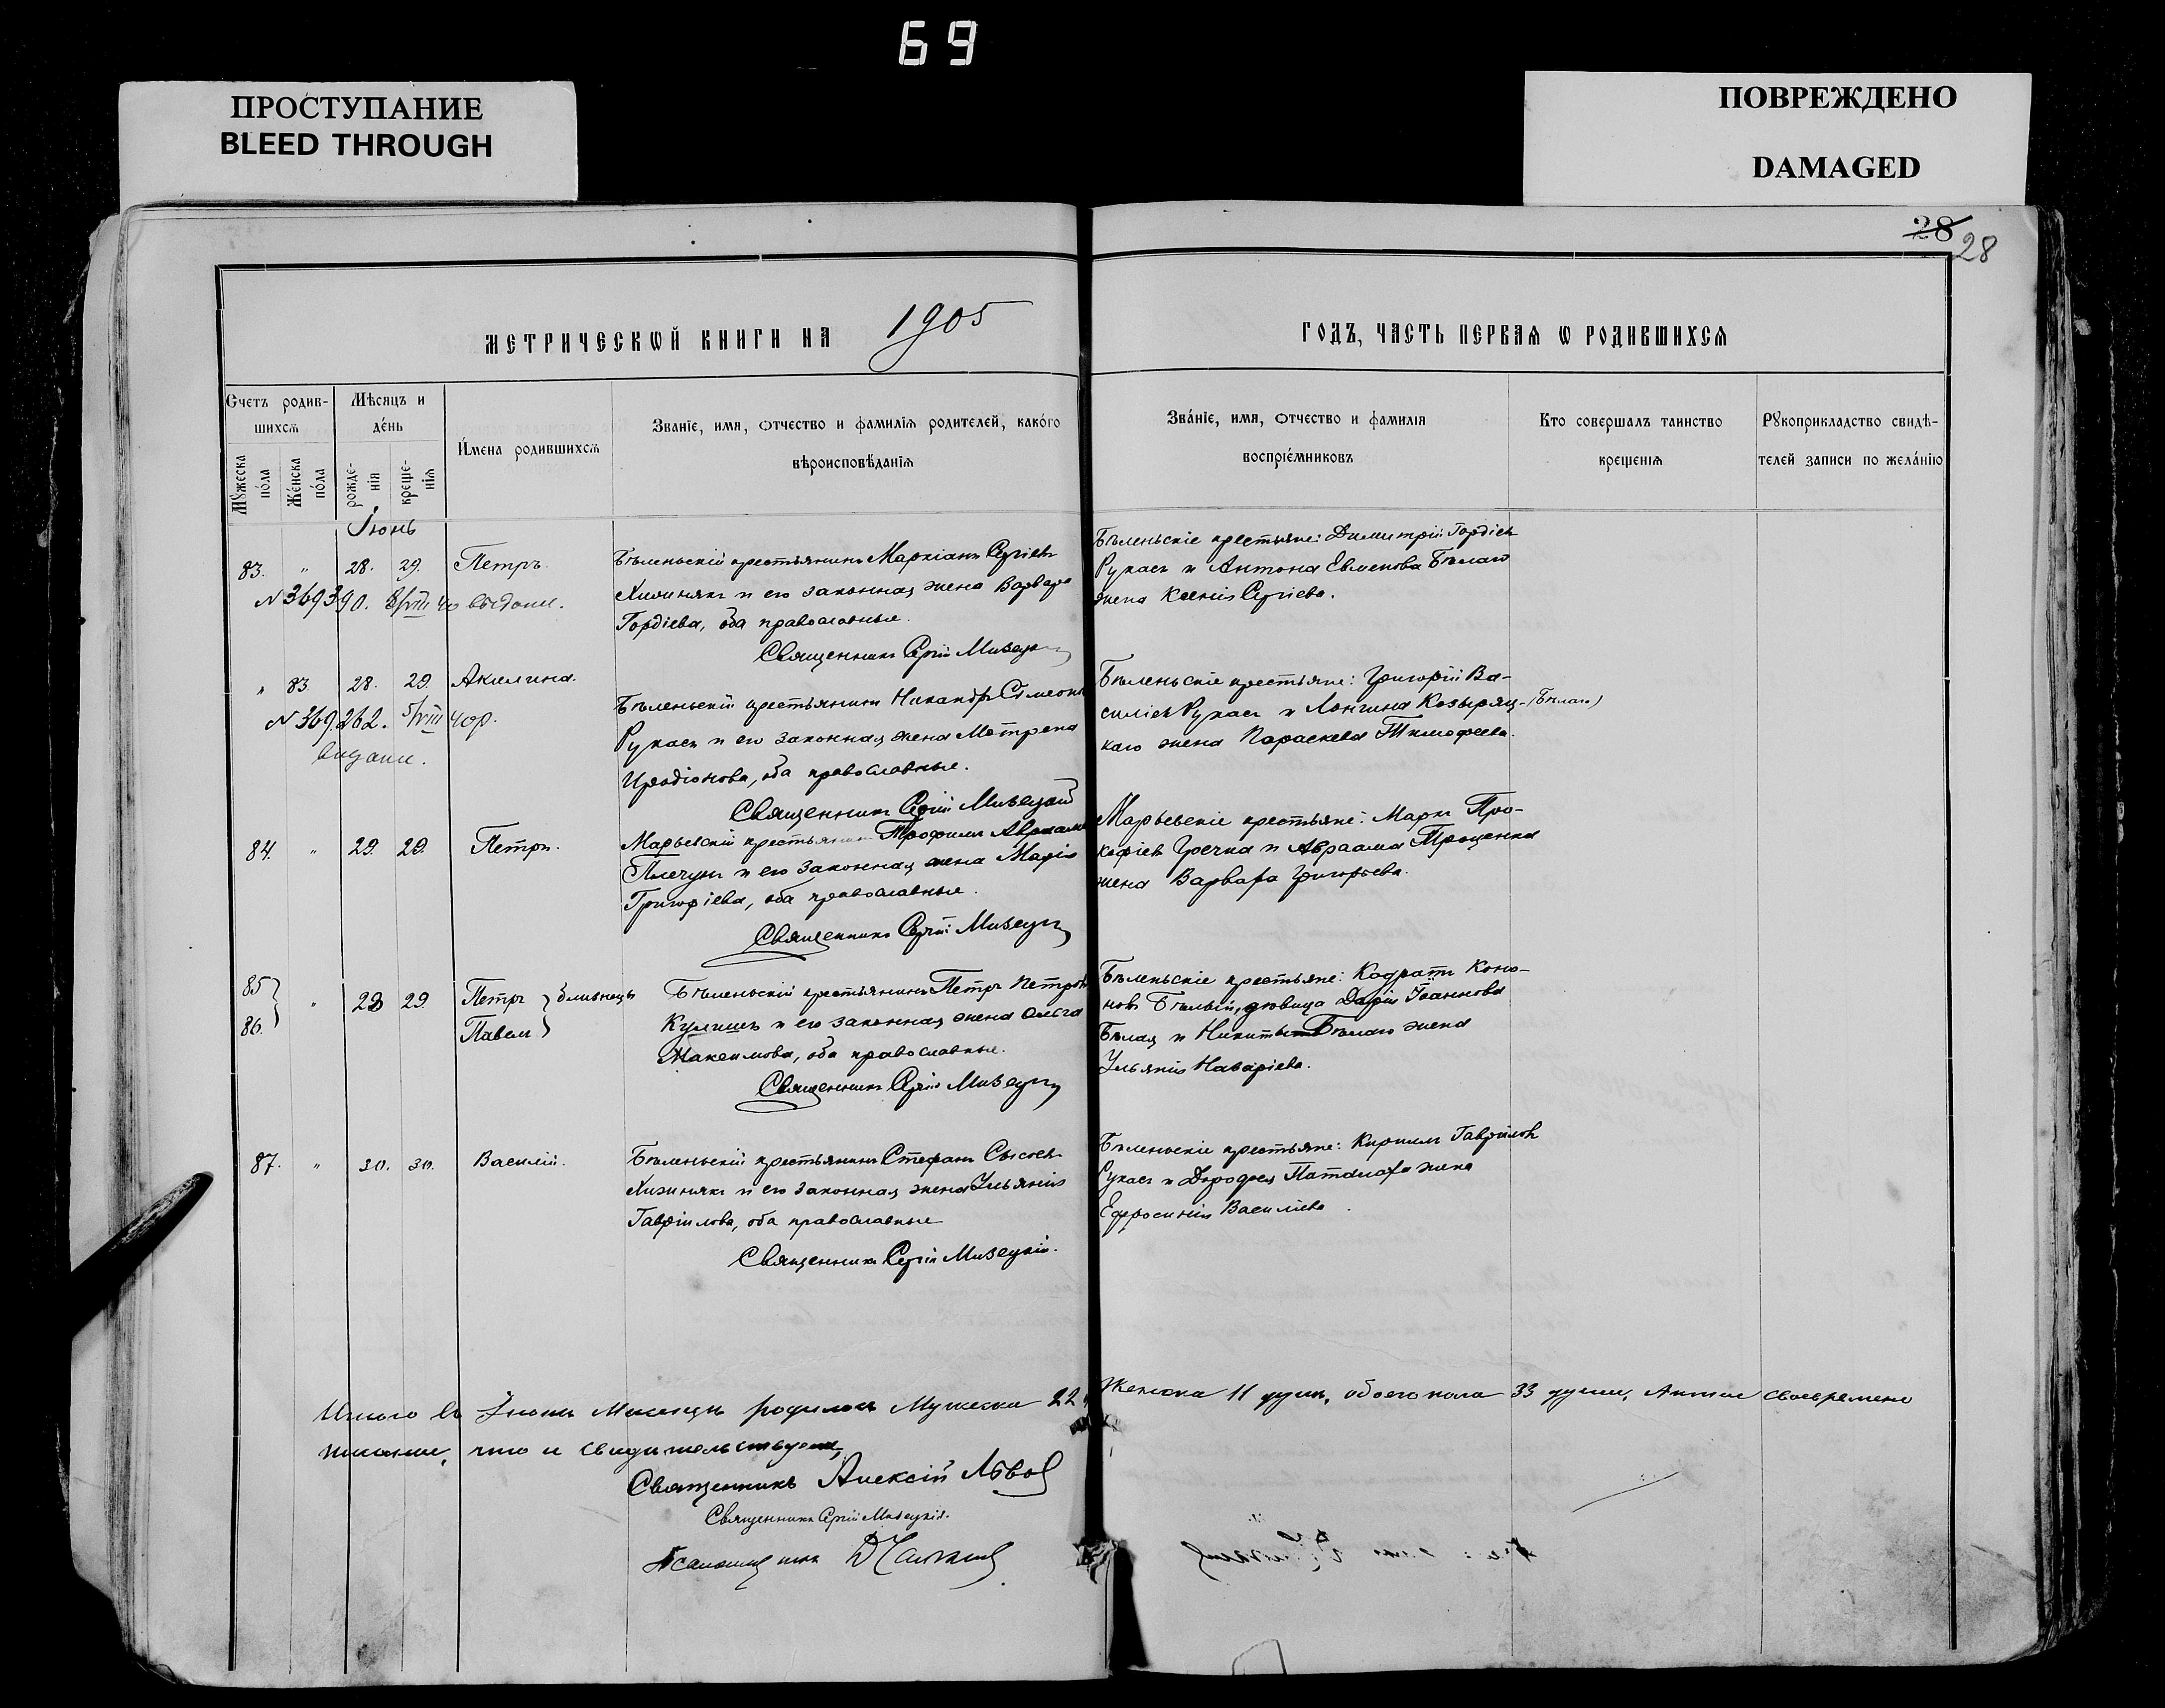 69
ПРОСТУПАНИЕ
BLEED THROUGH
ПОВРЕЖДЕНО
DAMAGED
28
28
МЕТРИЧЕСКѠЙ КНИГИ НА 1905
ГОДЪ, ЧАСТЬ ПЕРВАЯ Ѡ РОДИВШИХСЯ
Счетъ родив-
шихся
Мѣсяцъ и
день
Имена родившихся
Званіе, имя, отчество и фамилія родителей, какого
вѣроисповѣданія
Званіе, имя, отчество и фамилія
воспріемниковъ
Кто совершалъ таинство
крещенія
Рукоприкладство свидѣ-
телей записи по желанію
Мужеска
пола
Женска
пола
рожде-
нія
креще-
нія
Іюнь
83. " 28. 29. Петръ.
N 369390. 8/VIII 40 выдани.
Бѣленьскій крестьянинъ Маркіанъ Сергіевъ
Хижнякъ и его законная жена Варвара
Гордіева, оба православные.
Священникъ Сергій Мизецкій
Бѣленьскіе крестьяне: Димитрій Гордіевъ
Рукасъ и Антона Евменова Бѣлаго
жена Ксенія Сергіева.
" 83 28. 29. Акилина.
N 369.262. 5/VIII 40р.
видани.
Бѣленьскій крестьянинъ Никандръ Симеоновъ
Рукасъ и его законная жена Мотрена
Иродіонова, оба православные.
Священникъ Сергій Мизецкій
Бѣленьскіе крестьяне: Григорій Ва-
силіевъ Рукасъ и Лонгина Козыряц- (Бѣлаго)
каго жена Параскева Тимофеева.
84. " 29. 29. Петръ.
Марьевскій крестьянинъ Трофимъ Авраамовъ
и его законная жена Марія
Григоріева, оба православные.
Священникъ Сергій Мизецкій
Марьевскіе крестьяне: Маркъ Про-
кофіевъ Гречка и Авраама Троценка
жена Варвара Григорьева.
85
86. " 29 29 Петръ } близнецы
Павелъ
Бѣленьскій крестьянинъ Петръ Петровъ
Кулишъ и его законная жена Ольга
Максимова, оба православные.
Священникъ Сергій Мизецкій
Бѣленьскіе крестьяне: Кодратъ Коно-
новъ Бѣлый, дѣвица Дарія Іоаннова
Бѣлая и Никиты Бѣлаго жена
Ульянія Назаріева.
87. " 30. 30. Василій.
Бѣленьскій крестьянинъ Стефанъ Сысоевъ
Хижнякъ и его законная жена Ульянія
Гавріилова, оба православные
Священникъ Сергій Мизецкій.
Бѣленьскіе крестьяне: Кириллъ Гавріиловъ
Рукасъ и Дорофея Паталаха жена
Ефросинія Василіева.
Итого въ Іюнѣ Мѣсяцѣ родилось Мужеска 22, Женска 11 душъ, обоего пола 33 души, Актъ своевремено
писанъ, что и свидительствуемъ,
Священникъ Алексій Львов
Священникъ Сергій Мизецкій.
Псаломщикъ